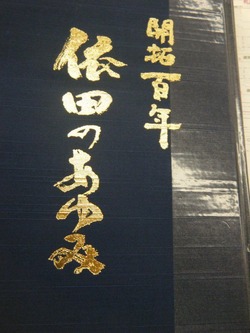 開拓百年
依田のあゆみ